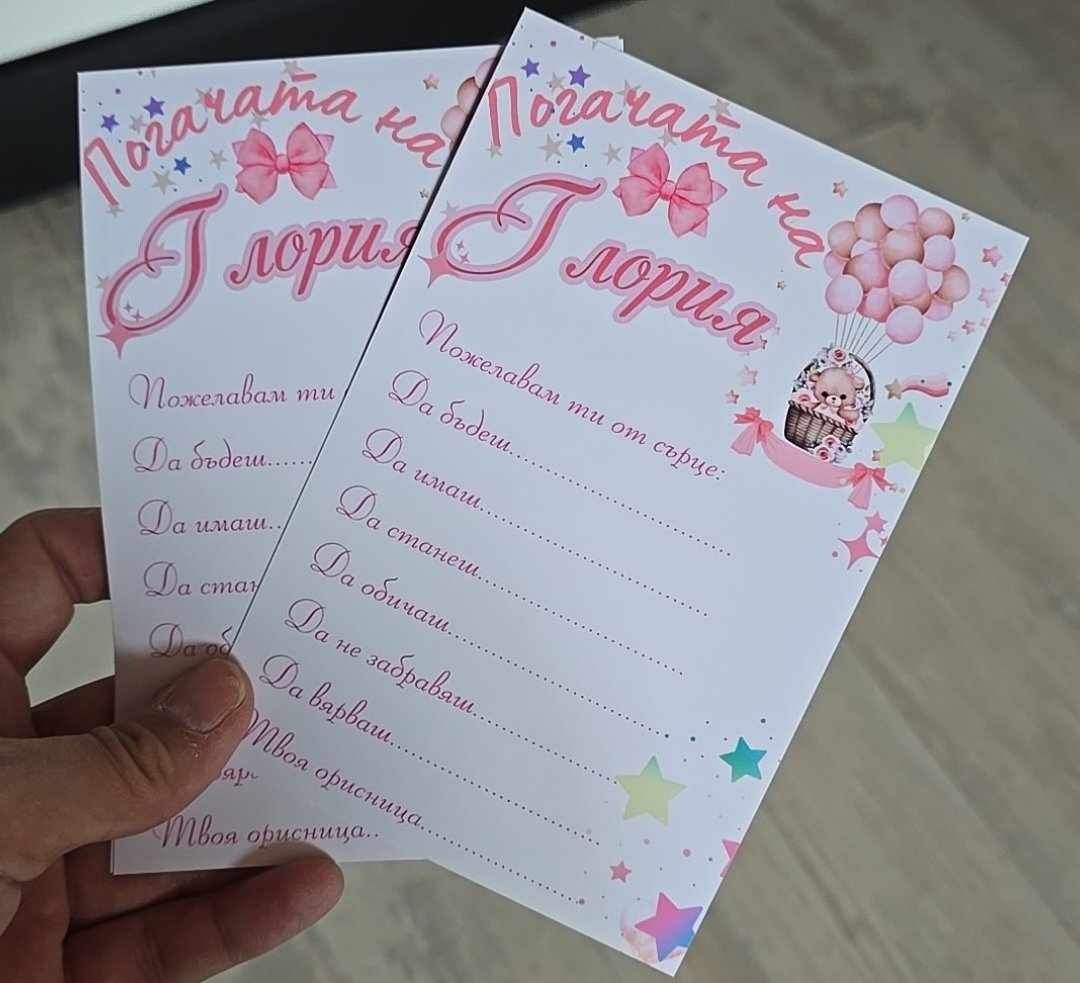 Погачата на
Глория
Пожелавам ти
Да бъдеш......
Да имаш..
Да стан
Да об
Твоя орисница..
Погачата на
Глория
Пожелавам ти от сърце:
Да бъдеш..............................
Да имаш..............................
Да станеш..............................
Да обичаш..............................
Да не забравяш....................
Да вярваш..............................
Твоя орисница....................